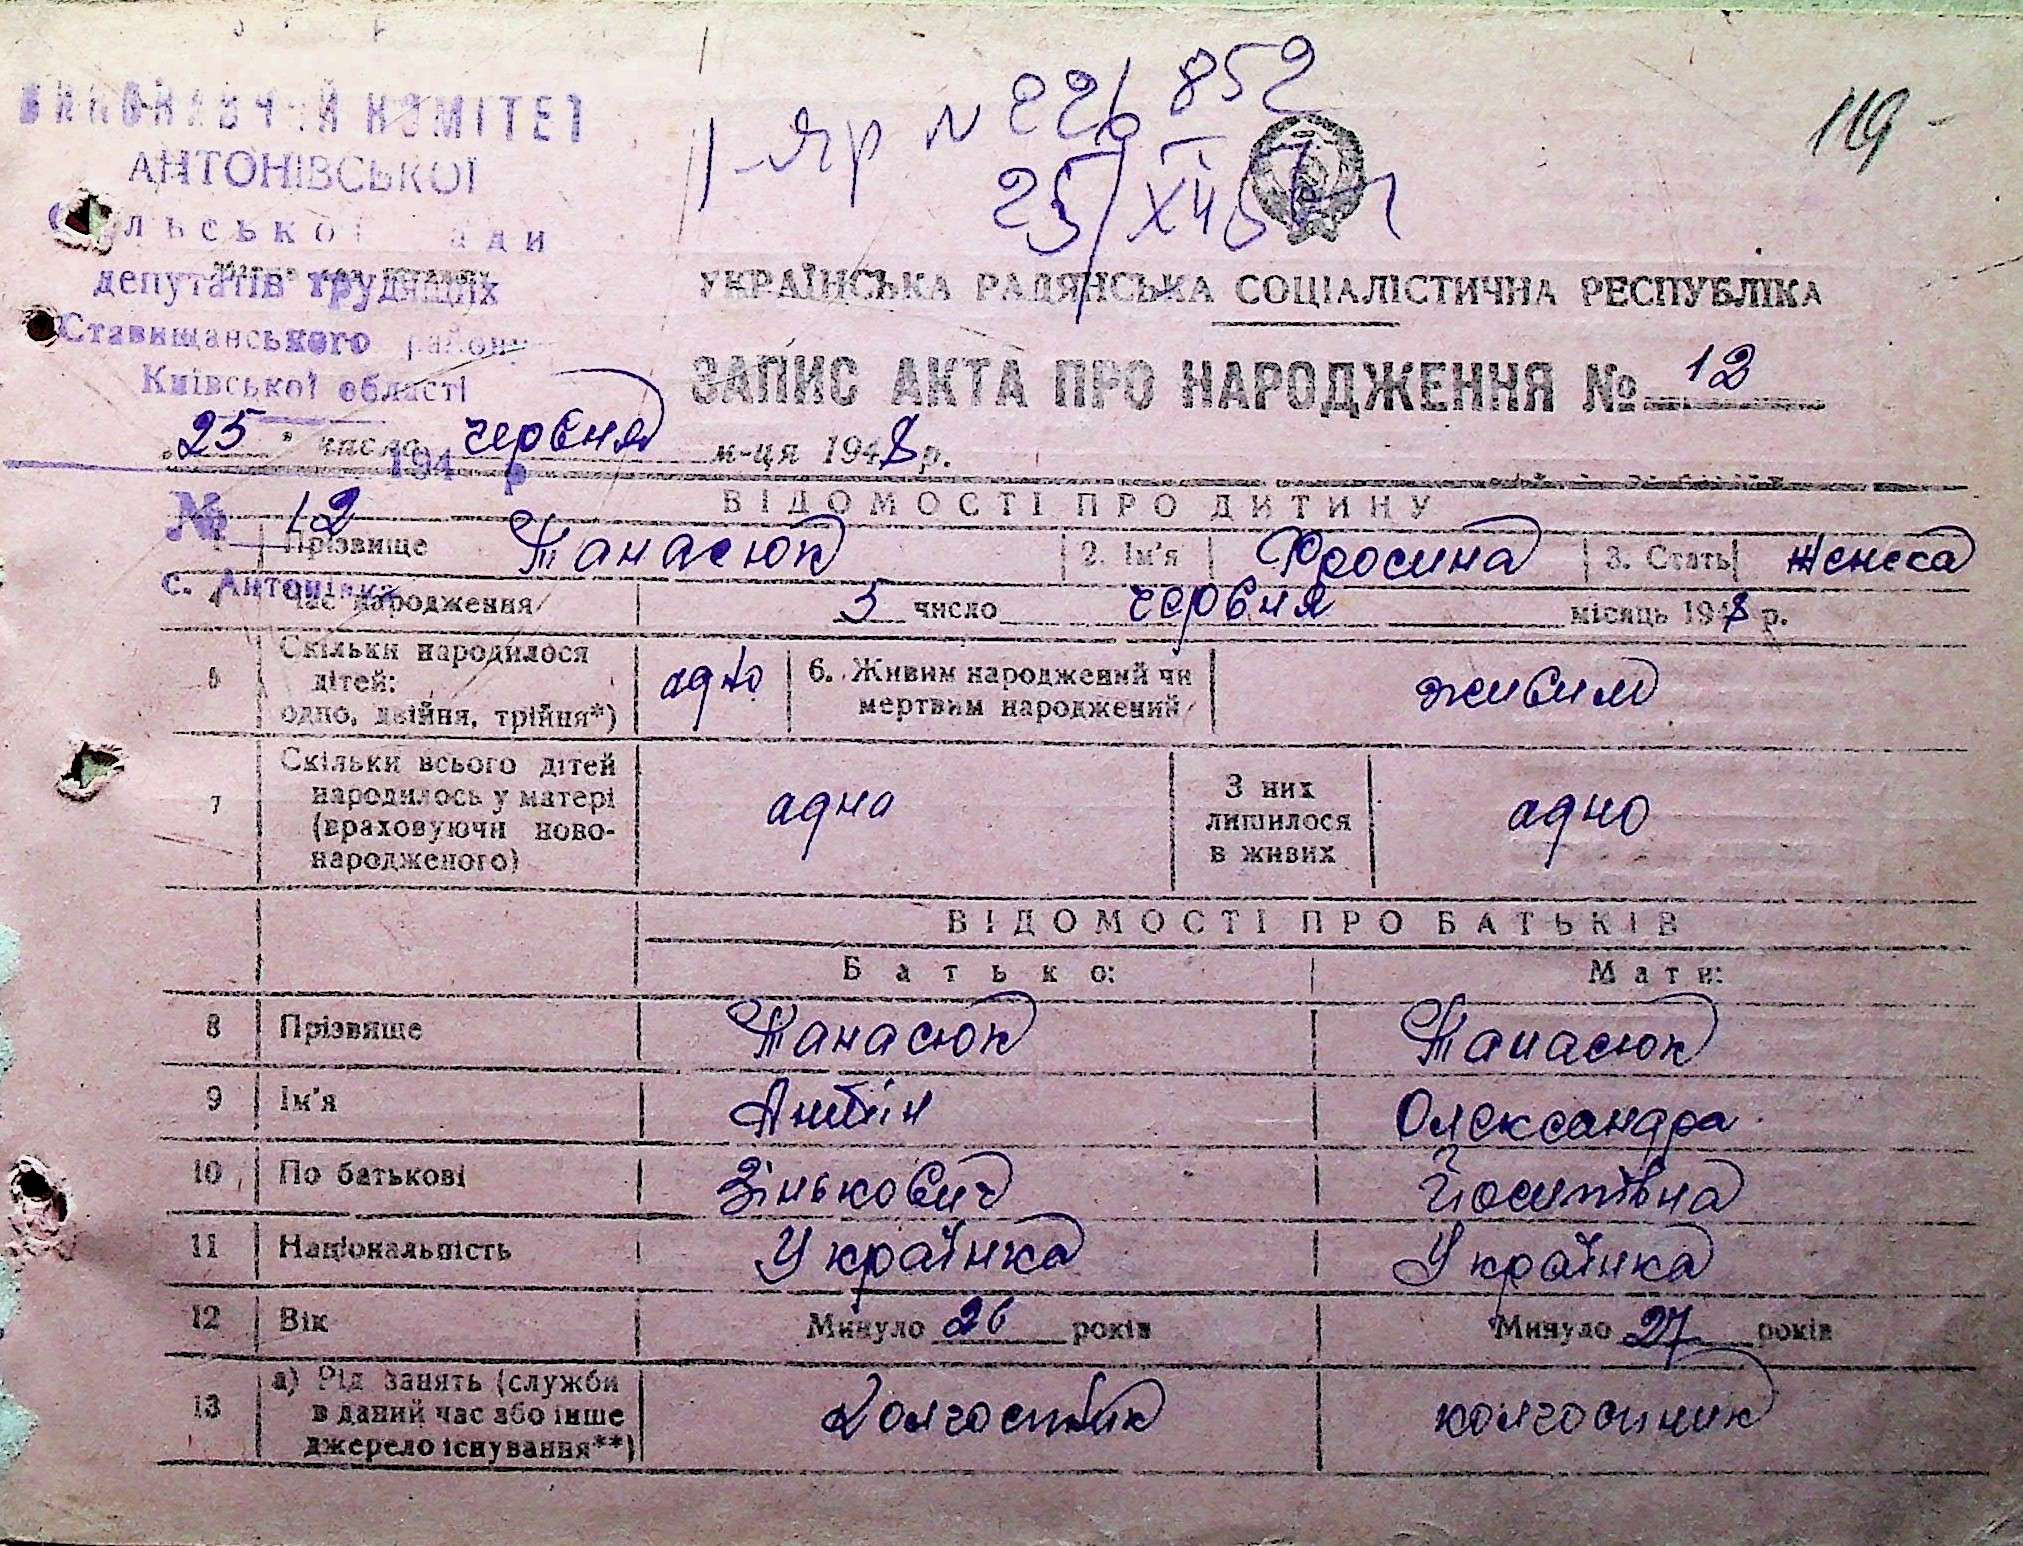 ВИКОНАВЧИЙ КОМІТЕТ
АНТОНІВСЬКОЇ
сільської ради
депутатів трудящих
Ставищанського району
Київської області
194 р
№ 12
с. Антонівка
119
І-ЯР N 226852
25/XII
УКРАЇНСЬКА РАДЯНСЬКА СОЦІАЛІСТИЧНА РЕСПУБЛІКА
ЗАПИС АКТА ПРО НАРОДЖЕННЯ № 12
25 число червня м-ця 1948 р.
ВІДОМОСТІ ПРО ДИТИНУ
Прізвище Танасюк 2. Ім'я Фросина 3. Стать женска
4 Час народження 5 число червня місяць 1948 р.
5 Скільки народилося дітей: одно, двійня, трійня*) адно 6. Живим народжений чи мертвим народжений живим
7 Скільки всього дітей народилось у матері (враховуючи ново-народженого) адна З них лишилося в живих адно
ВІДОМОСТІ ПРО БАТЬКІВ
Батько: Мати:
8 Прізвище Танасюк Танасюк
9 Ім'я Антін Олександра
10 По батькові Зінькович Йосипівна
11 Національність Українка Українка
12 Вік Минуло 26 років Минуло 27 років
13 а) Рід занять (служби в даний час або інше джерело існування**) колгоспник колгоспник